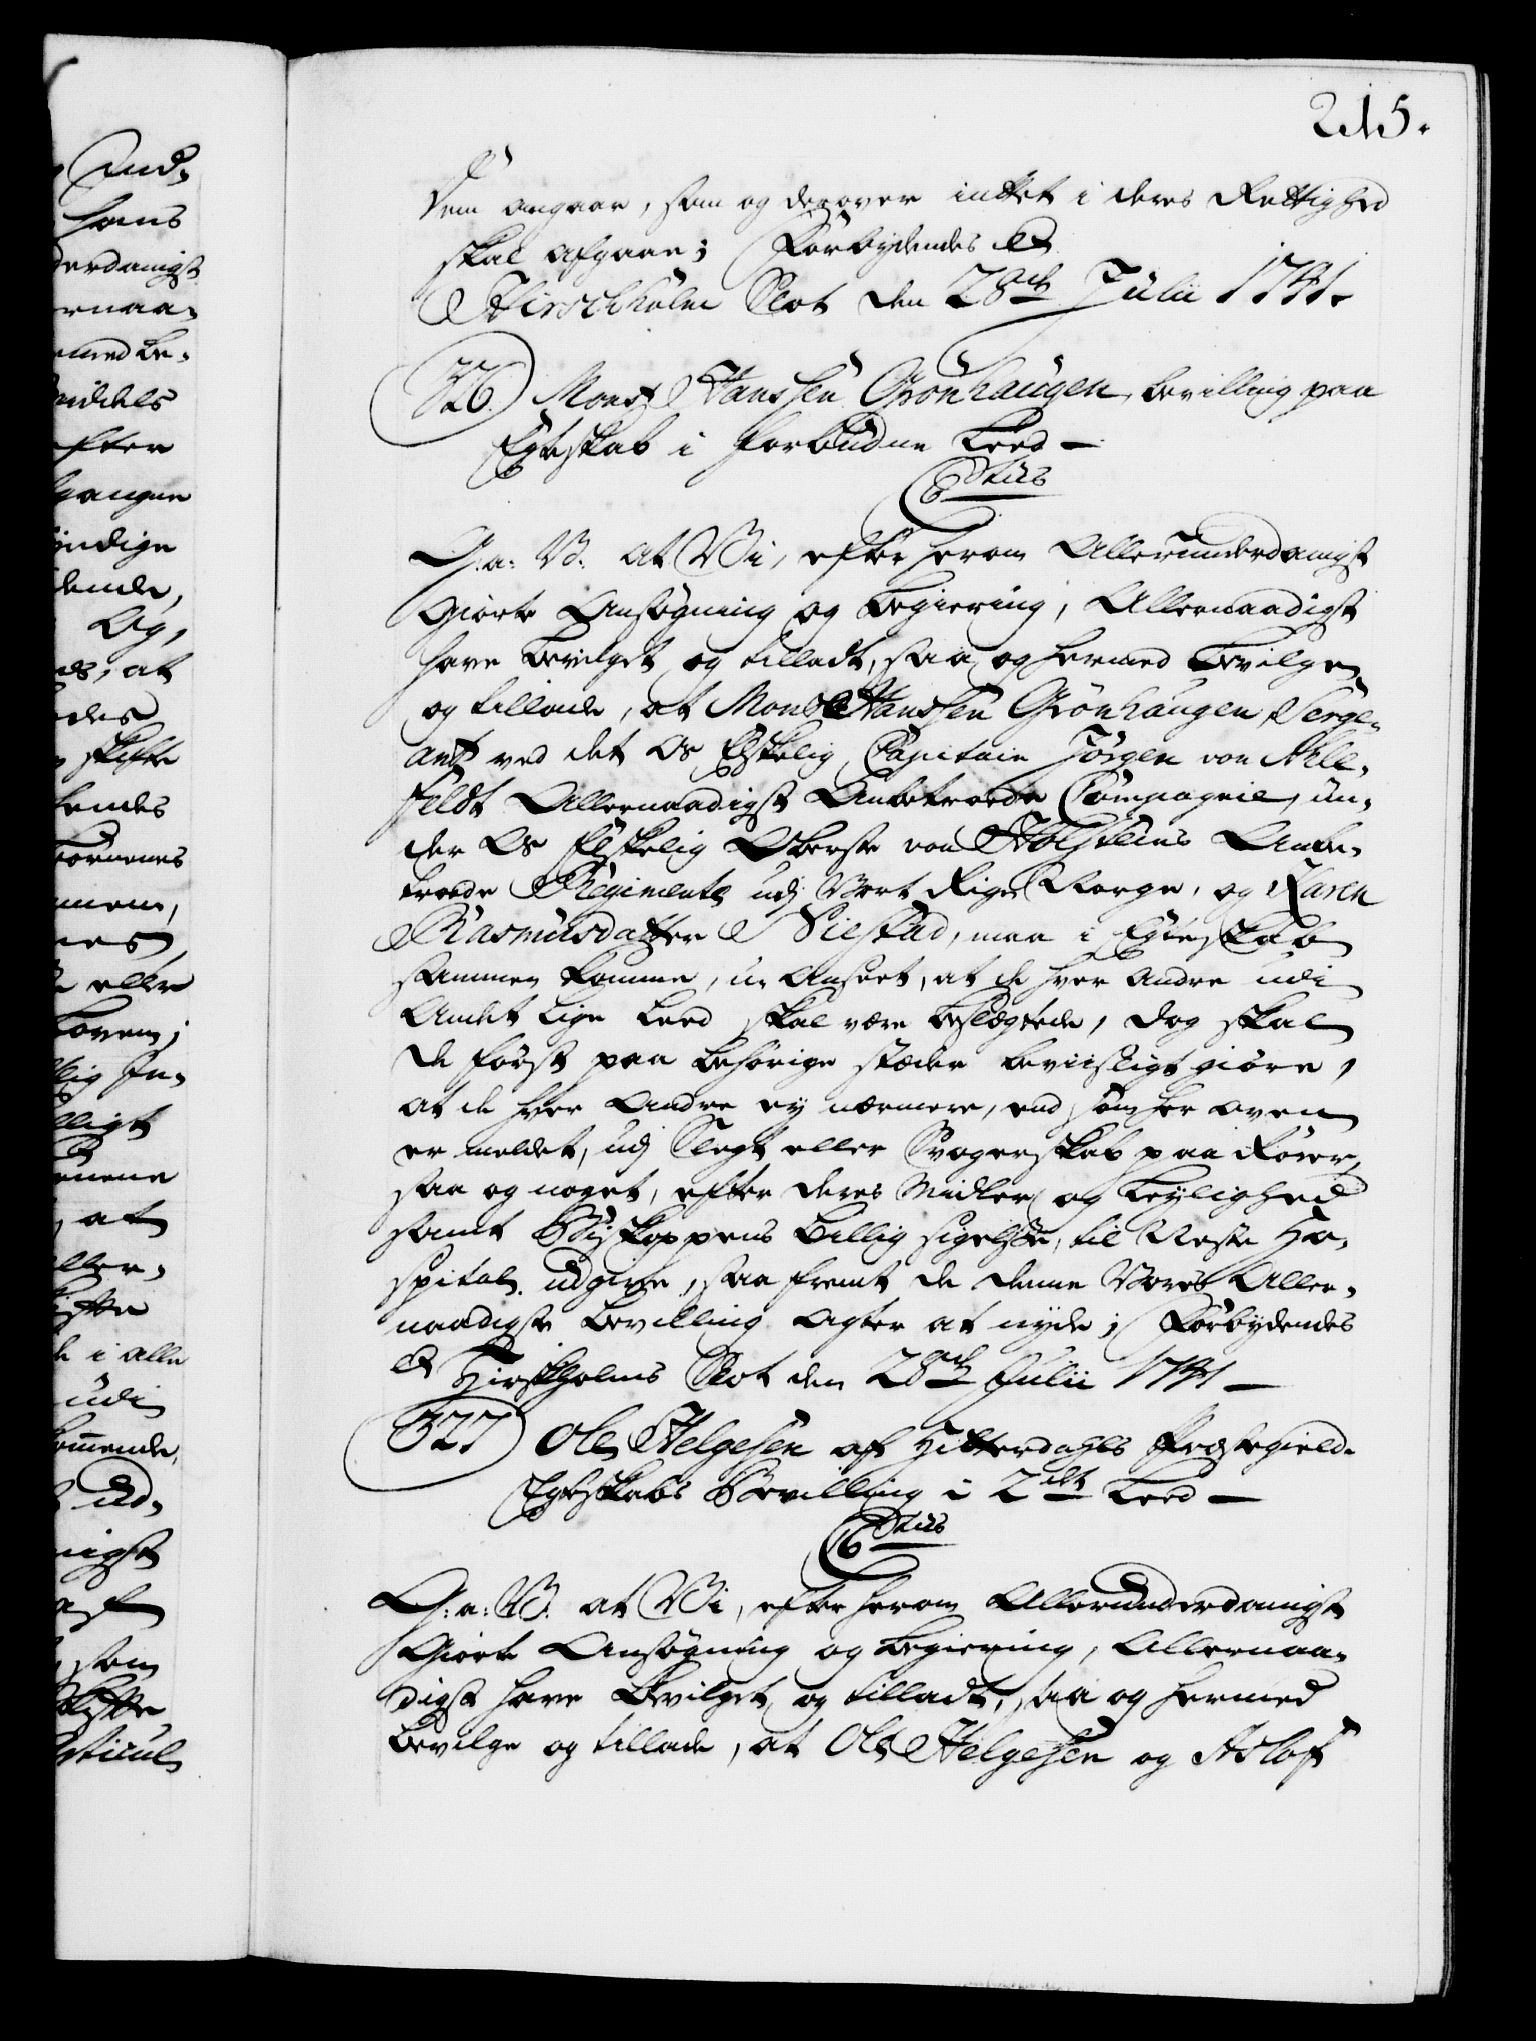 215.
dem angaar, som og derover intet i deres Rettighed
skal afgaae; Forbydendes &c
Hirschholm Slot den 28de Julii 1741.
326. Mons Hanssen Grönhaugen, bevilling paa
Egteskab i forbudne Leed —
Gratis
G: a: V: at Vi, efter herom Allerunderdanigst
Giorte Ansøgning og Begiering, Allernaadigst
have bevilget og tilladt, saa og hermed bevilge
og tillade, at Mons Hanssen Grönhaugen, Serge-
ant ved det Os Elskelig Capitain Jörgen von Ahle-
feldt Allernaadigst Anbetroede Compagnie, un-
der Os Elskelig Oberste von Holsteins Anbe-
troede Regimente udj Vort Rige Norge, og Karen
Rasmusdatter Siestad, maa i Egteskab
sammen komme, u-anseet, at de hver andre udi
Andet Lige Leed skal være beslægtede, dog skal
de først paa behørige stæder beviisligt giøre,
at de hver Andre ey nærmere, end som her oven
er meldet, udj Slegt eller Svogerskab paarører,
saa og noget, efter deres Midler og Leylighed
samt Biskoppens billig sigelse, til Neste Ho-
spital udgive, saafremt de denne Vores Aller-
naadigste bevilling agter at nyde; Forbydendes
&c Hirschholms Slot den 28de Julii 1741 —
327 Ole Helgesen af Hitterdahls Præstegield.
Egteskabs Bevilling i 2det Leed —
Gratis
G: a: V: at Vi, efter herom Allerunderdanigst
Giorte Ansøgning og begiering, Allernaa-
digst have bevilget og tilladt, saa og hermed
bevilge og tillade, at Ole Helgesen og Aslof